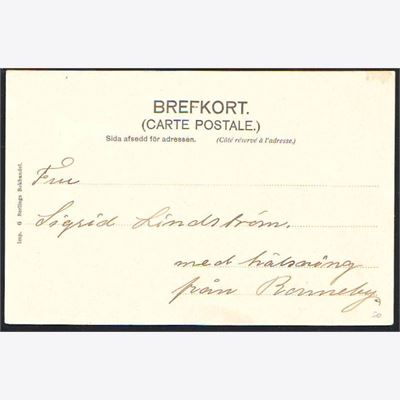 BREFKORT.
(CARTE POSTALE.)
Sida afsedd för adressen. (Côté réservé à l'adresse.)
Fru
Sigrid Lindström.
med hälsning
från Ronneby
Imp. G Berlings Bokhandel.
50